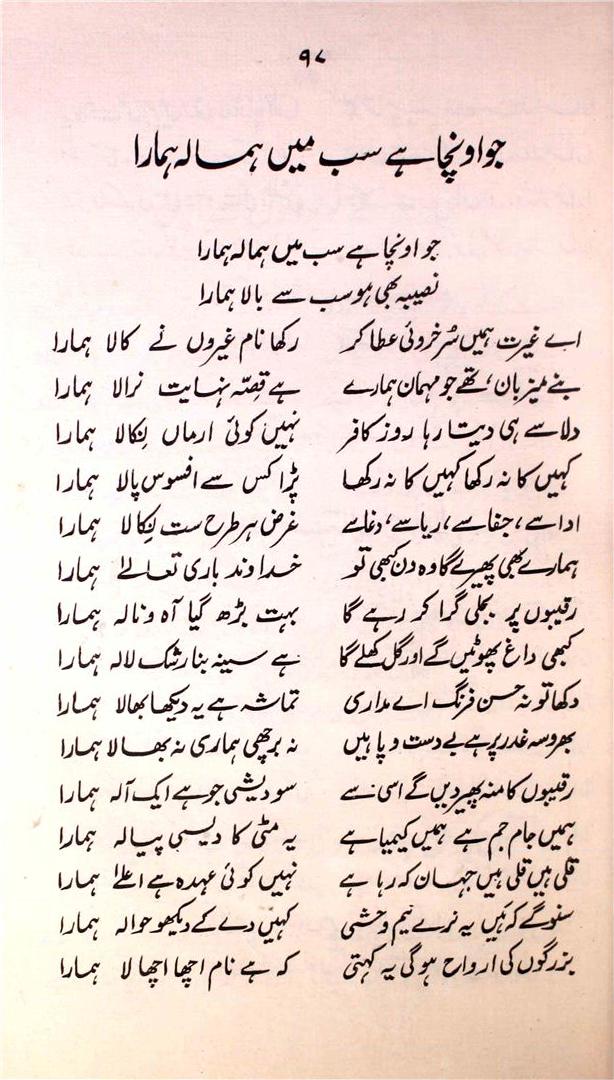 ۹۷
جو اونچا ہے سب میں ہمالہ ہمارا
جو اونچا ہے سب میں ہمالہ ہمارا
نصیبہ بھی ہو سب سے بالا ہمارا
اے غیرت ہمیں سُرخروئی عطا کر رکھا نام غیروں نے کالا ہمارا
بنے میزبان، تھے جو مہمان ہمارے ہے قصّہ نہایت نرالا ہمارا
دلاسے ہی دیتا رہا روز کافر نہیں کوئی ارماں نکالا ہمارا
کہیں کا نہ رکھا کہیں کا نہ رکھا پڑا کس سے افسوس پالا ہمارا
ادا سے، جفا سے، ریا سے، دغا سے غرض ہر طرح ست نکالا ہمارا
ہمارے بھی پھیرے گا وہ دن کبھی تو خداوند باری تعالےٰ ہمارا
رقیبوں پر بجلی گرا کر رہے گا بہت بڑھ گیا آہ و نالہ ہمارا
کبھی داغ پھوٹیں گے اور گل کھلے گا ہے سینہ بنا رشک لالہ ہمارا
دکھا تو نہ حسن فرنگ اے مداری تماشہ ہے یہ دیکھا بھالا ہمارا
بھروسہ غدر پر ہے بے دست و پا ہیں نہ برچھی ہماری نہ بھالا ہمارا
رقیبوں کا منہ پھیر دیں گے اسی سے سودیشی جو ہے ایک آلہ ہمارا
ہمیں جام جم ہے ہمیں کیمیا ہے یہ مٹی کا دیسی پیالہ ہمارا
قلی ہیں قلی ہیں جہان کہ رہا ہے نہیں کوئی عہدہ ہے اعلےٰ ہمارا
سنو گے کہ ہَیں یہ نرے نیم وحشی کہیں دے کے دیکھو حوالہ ہمارا
بزرگوں کی ارواح ہوگی یہ کہتی کہ ہے نام اچھا اچھالا ہمارا